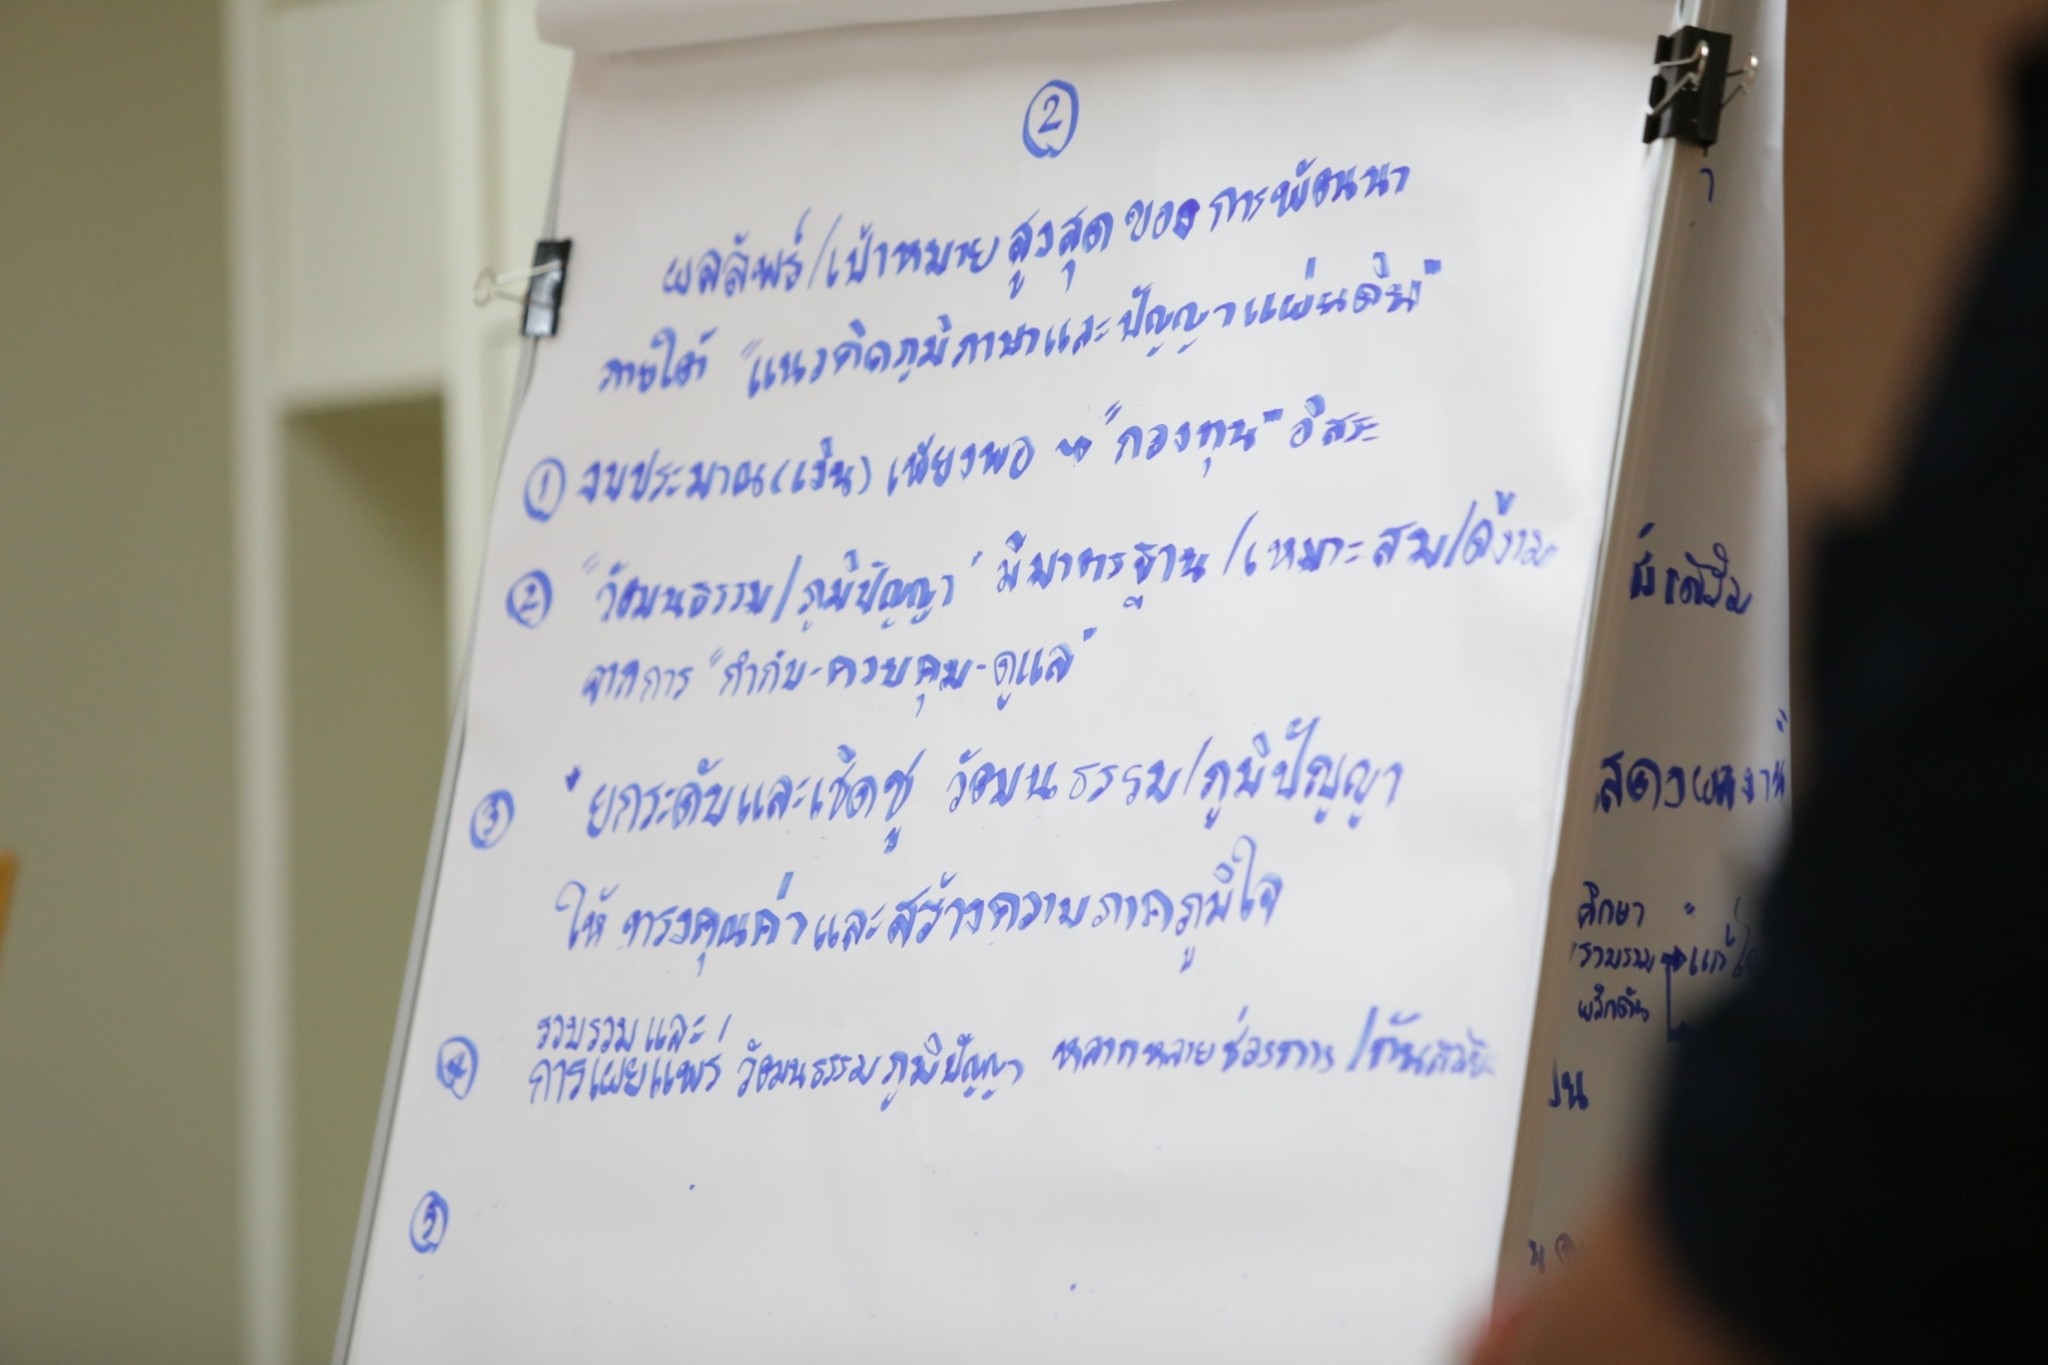 2
ผลลัพธ์/เป้าหมายสูงสุดของการพัฒนา
ภายใต้ "แนวคิดภูมิภาษาและปัญญาแผ่นดิน"
① งบประมาณ(เงิน) เพียงพอ → "กองทุน" อิสระ
② "วัฒนธรรม/ภูมิปัญญา" มีมาตรฐาน/เหมาะสม/ดีงาม
จากการ "กำกับ-ควบคุม-ดูแล"
③ "ยกระดับและเชิดชู วัฒนธรรม/ภูมิปัญญา
ให้ ทรงคุณค่าและสร้างความภาคภูมิใจ
④ รวบรวมและ
การเผยแพร่ วัฒนธรรมภูมิปัญญา หลากหลายช่องทาง
⑤
ศึกษา
รวบรวม
ผลักดัน